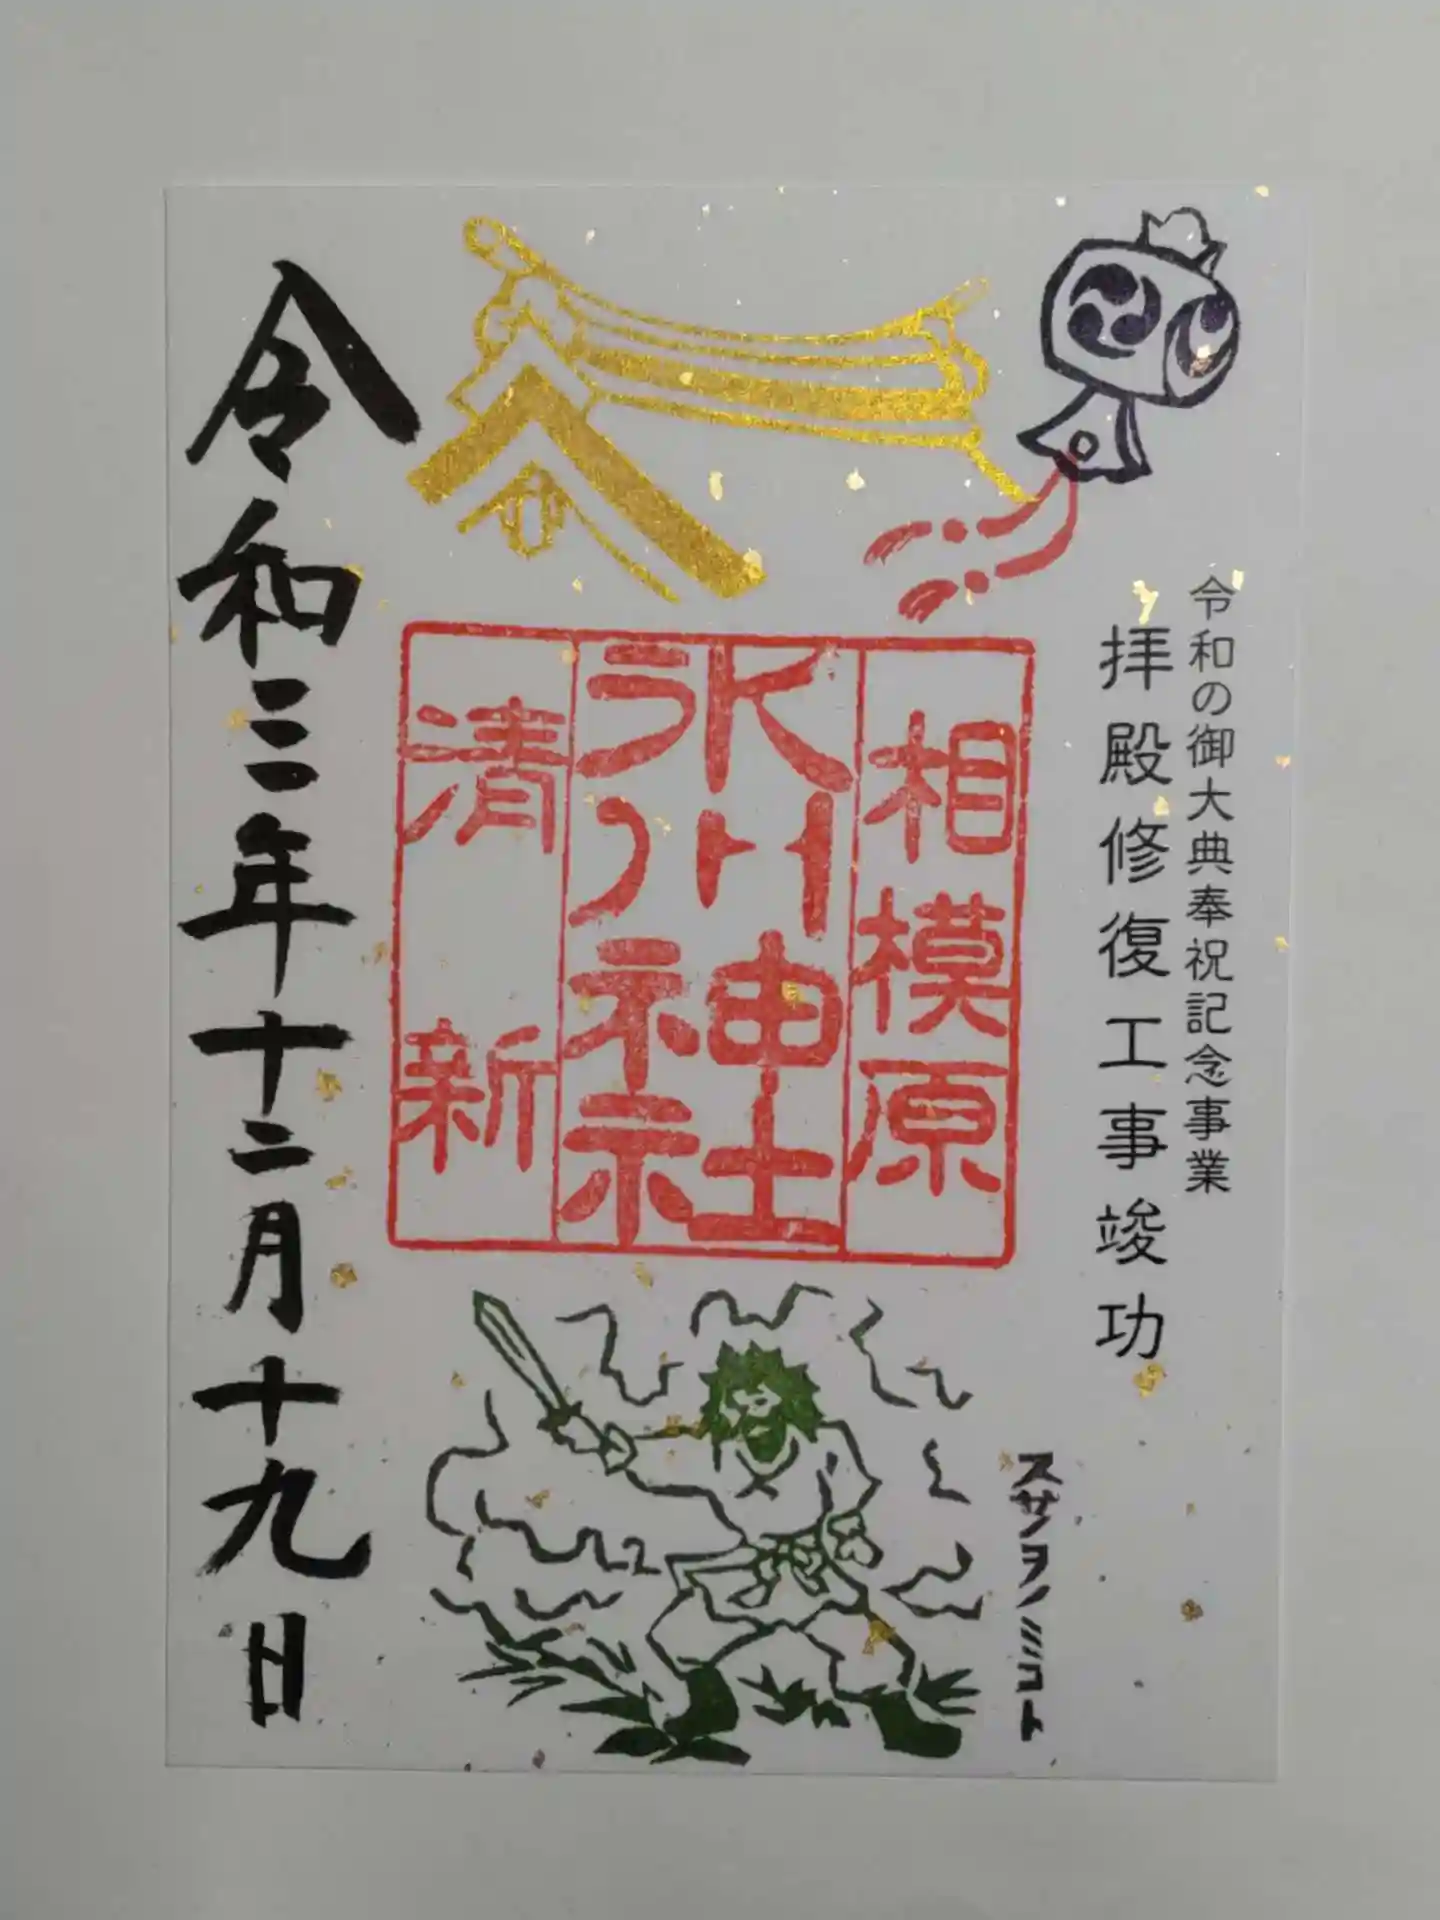 令和の御大典奉祝記念事業
拝殿修復工事竣功
相模原
氷川神社
清新
スサノヲノミコト
令和三年十二月十九日